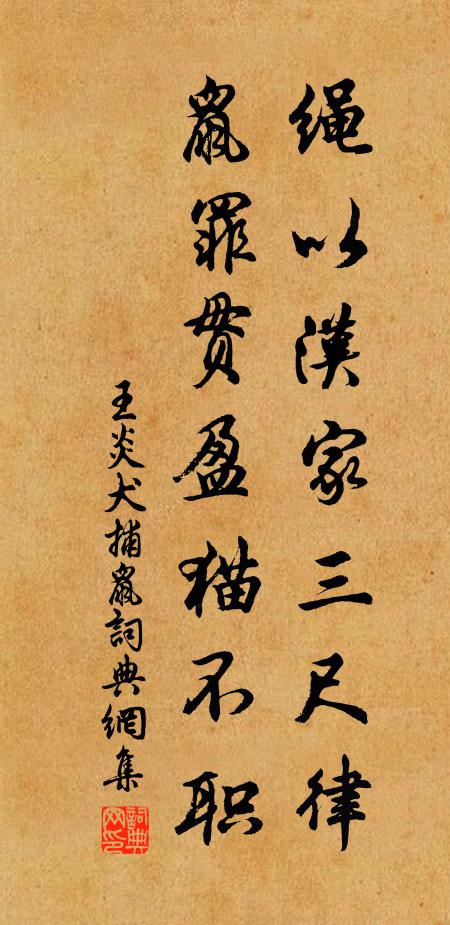 绳以漢家三尺律
鼠罪贯盈猫不职
王炎犬捕鼠詞典網集
詞典网印